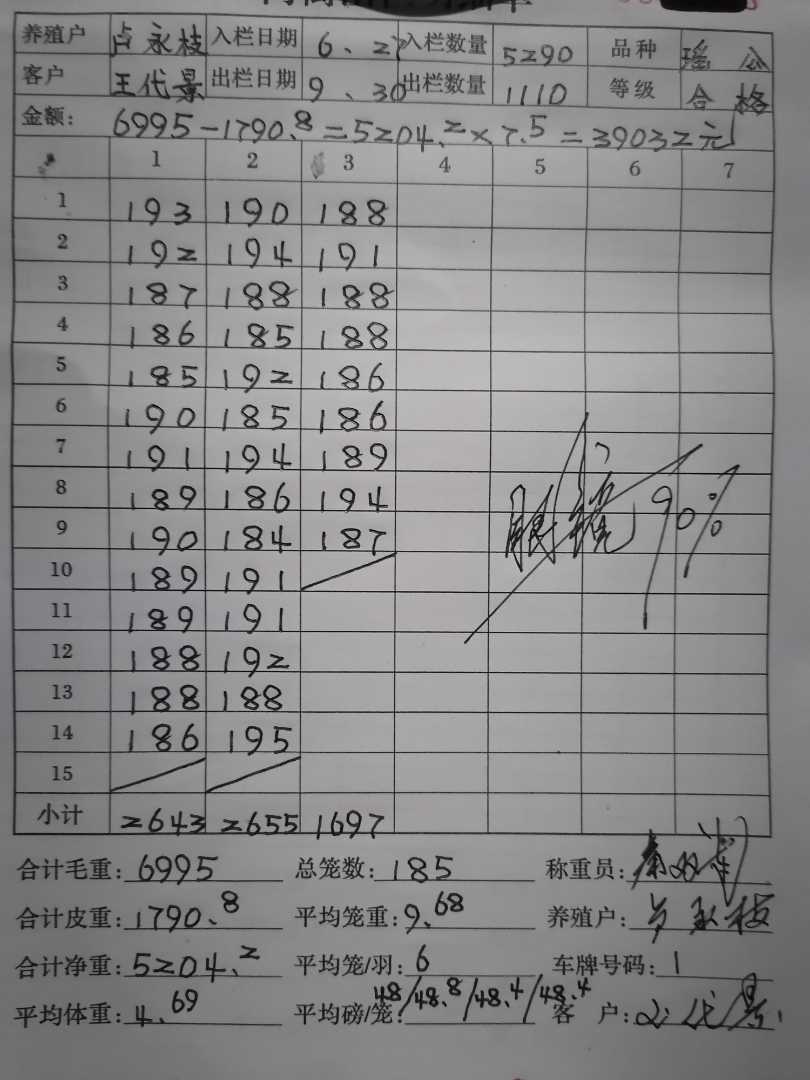 养殖户 卢永枝 入栏日期 6、27 入栏数量 5290 品种 瑶公
客户 王代景 出栏日期 9、30 出栏数量 1110 等级 合格
金额: 6995-1790.8=5204.2×7.5=39032元
1 2 3 4 5 6 7
1 193 190 188
2 192 194 191
3 187 188 188
4 186 185 188
5 185 192 186
6 190 185 186
7 191 194 189
8 189 186 194
9 190 184 187
10 189 191
11 189 191
12 188 192
13 188 188
14 186 195
15
小计 2643 2655 1697
90%
合计毛重: 6995 总笼数: 185 称重员:
合计皮重: 1790.8 平均笼重: 9.68 养殖户: 卢永枝
合计净重: 5204.2 平均笼/羽: 6 车牌号码: 1
平均体重: 4.69 平均磅/笼: 48/48.8/48.4/48.4 客 户: 王代景